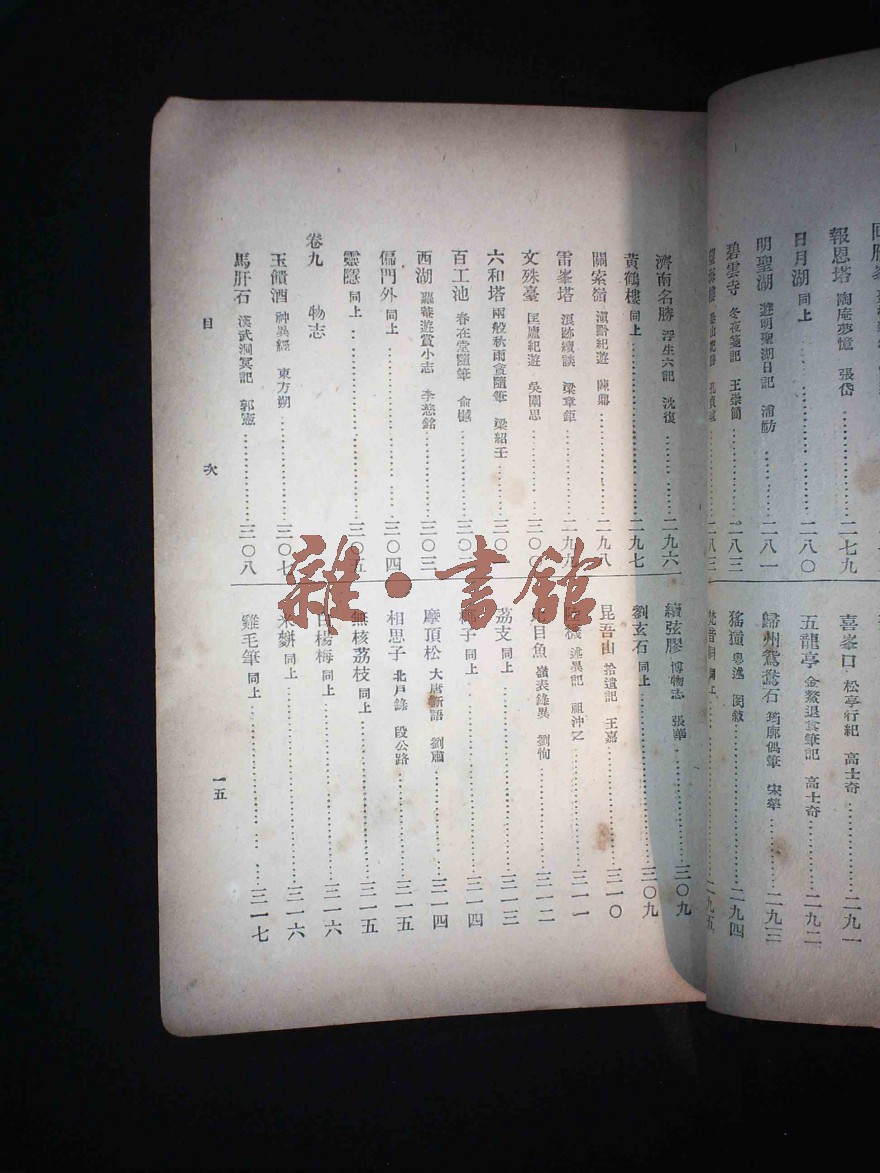 報恩塔 陶庵夢憶 張岱 二七九
日月湖 同上 二八〇
明聖湖 遊明聖湖日記 浦祊 二八一
碧雲寺 冬夜箋記 王崇簡 二八三
二八三
喜峯口 松亭行紀 高士奇 二九一
五龍亭 金鰲退食筆記 高士奇 二九二
歸州鴛鴦石 筠廊偶筆 宋犖 二九三
猺獞 粵述 閔敘 二九四
二九五
濟南名勝 浮生六記 沈復 二九六
黃鶴樓 同上 二九七
關索嶺 滇黔紀遊 陳鼎 二九八
雷峯塔 浪跡續談 梁章鉅 二九九
文殊臺 匡廬紀遊 吳闡思 三〇〇
六和塔 兩般秋雨盦隨筆 梁紹壬 三〇
百工池 春在堂隨筆 俞樾 三〇
西湖 蘿菴遊賞小志 李慈銘 三〇三
偏門外 同上 三〇四
靈隱 同上 三〇五
卷九 物志
玉饋酒 神異經 東方朔 三〇七
馬肝石 漢武洞冥記 郭憲 三〇八
續弦膠 博物志 張華 三〇九
劉玄石 同上 三〇九
昆吾山 拾遺記 王嘉 三一〇
述異記 祖沖之 三一一
目魚 嶺表錄異 劉恂 三一二
荔支 同上 三一三
子 同上 三一四
摩頂松 大唐新語 劉肅 三一四
相思子 北戶錄 段公路 三一五
無核荔枝 同上 三一五
白楊梅 同上 三一六
米𪌈 同上 三一六
雞毛筆 同上 三一七
目次
一五
雜·書館